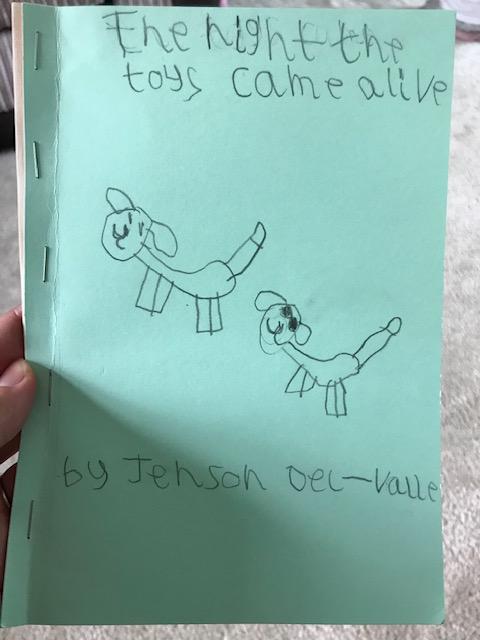 The night the
toys came alive
by Jenson Del-Valle